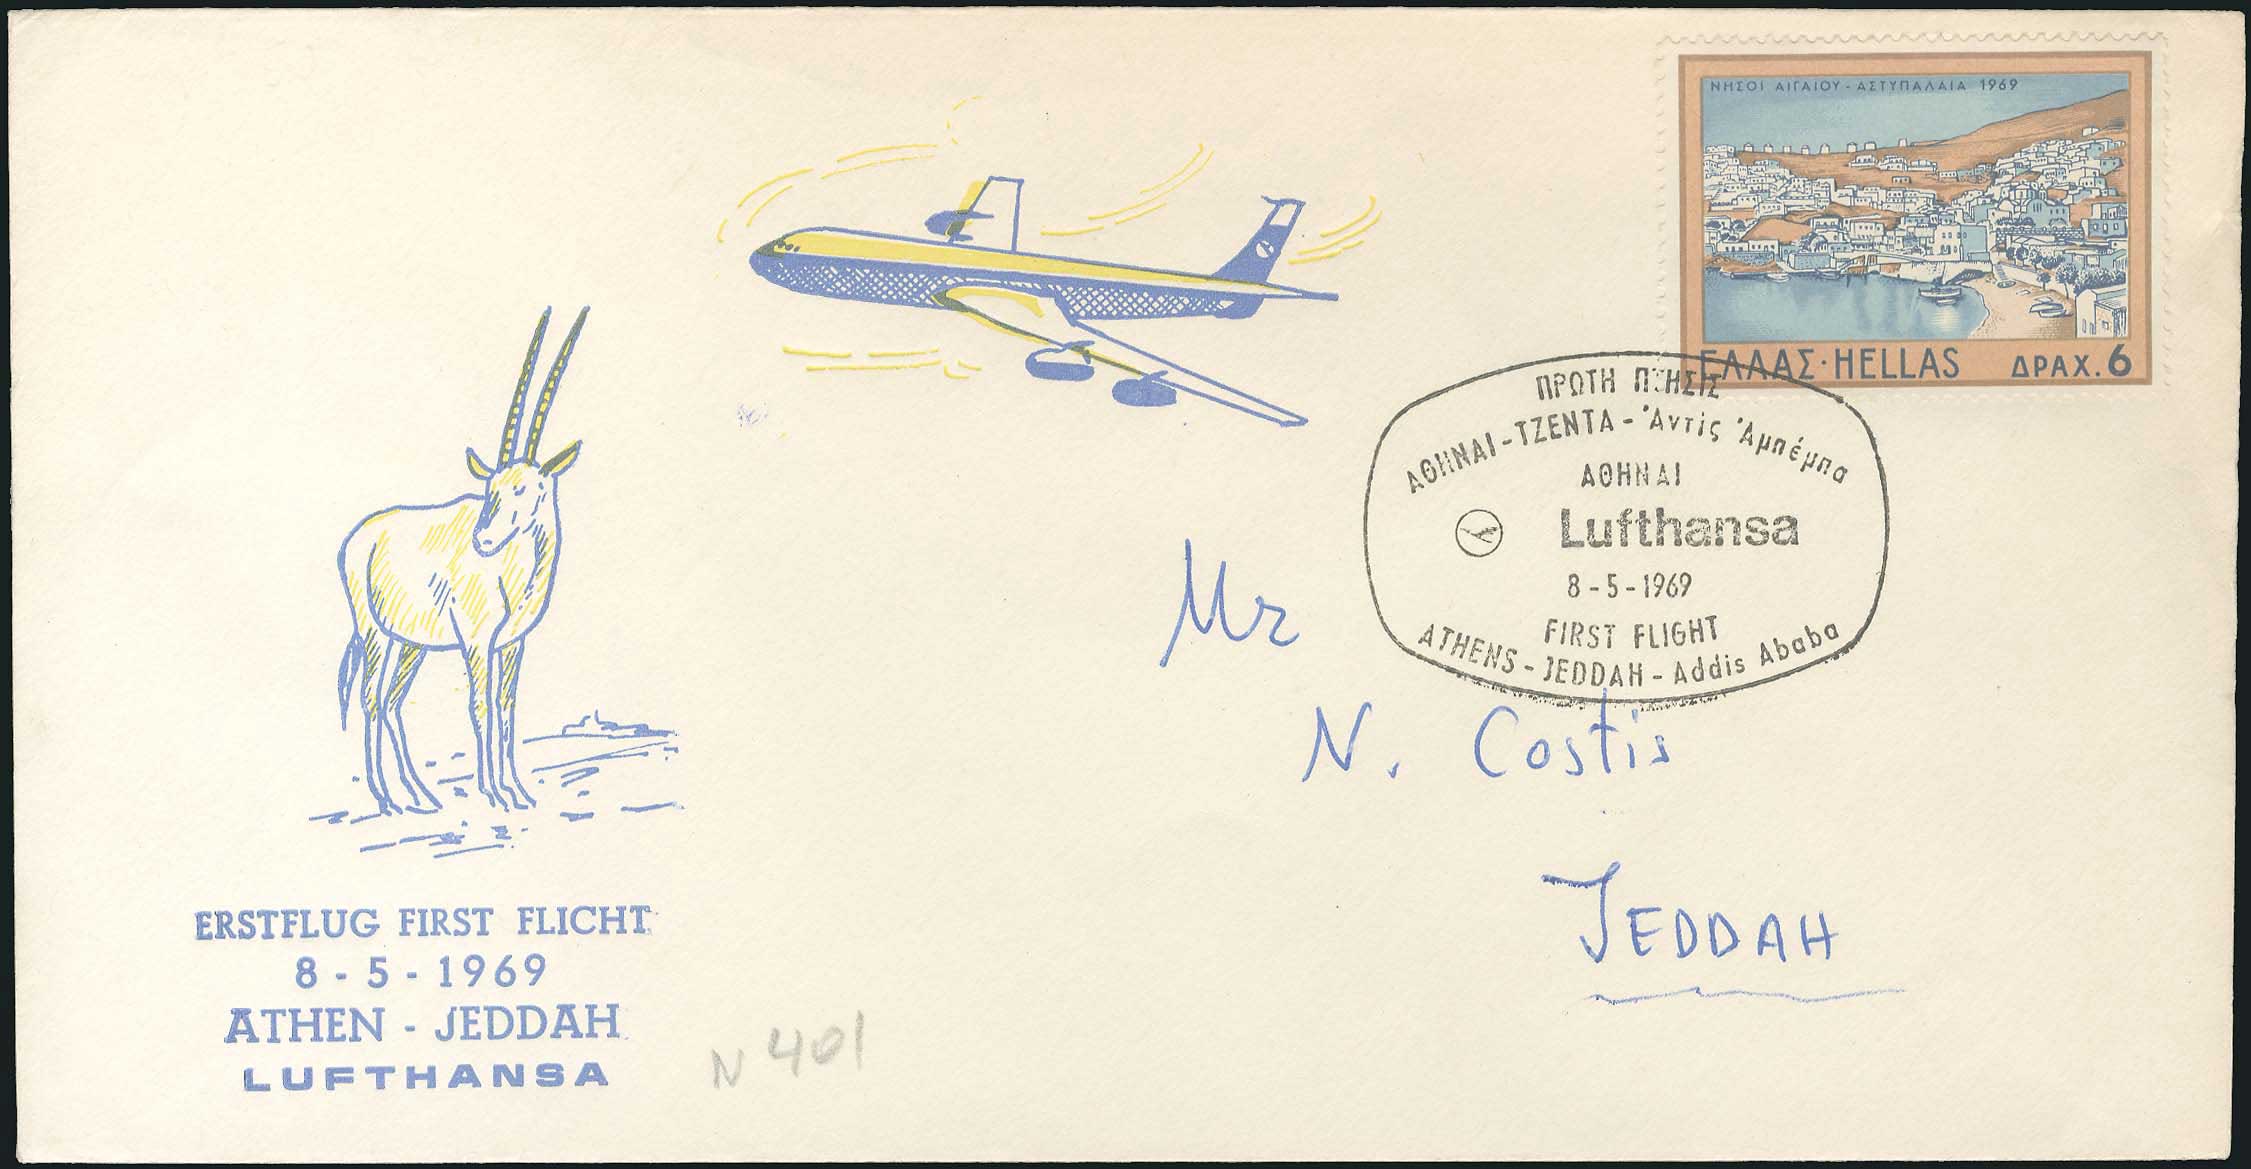 ΝΗΣΟΙ ΑΙΓΑΙΟΥ - ΑΣΤΥΠΑΛΑΙΑ 1969
ΕΛΛΑΣ · HELLAS ΔΡΑΧ. 6
ΠΡΩΤΗ ΠΤΗΣΙΣ
ΑΘΗΝΑΙ - ΤΖΕΝΤΑ - Ἀντίς Ἀμπέμπα
ΑΘΗΝΑΙ
Lufthansa
8 - 5 - 1969
FIRST FLIGHT
ATHENS - JEDDAH - Addis Ababa
Mr
N. Costis
JEDDAH
ERSTFLUG FIRST FLICHT
8 - 5 - 1969
ATHEN - JEDDAH
LUFTHANSA
N 401